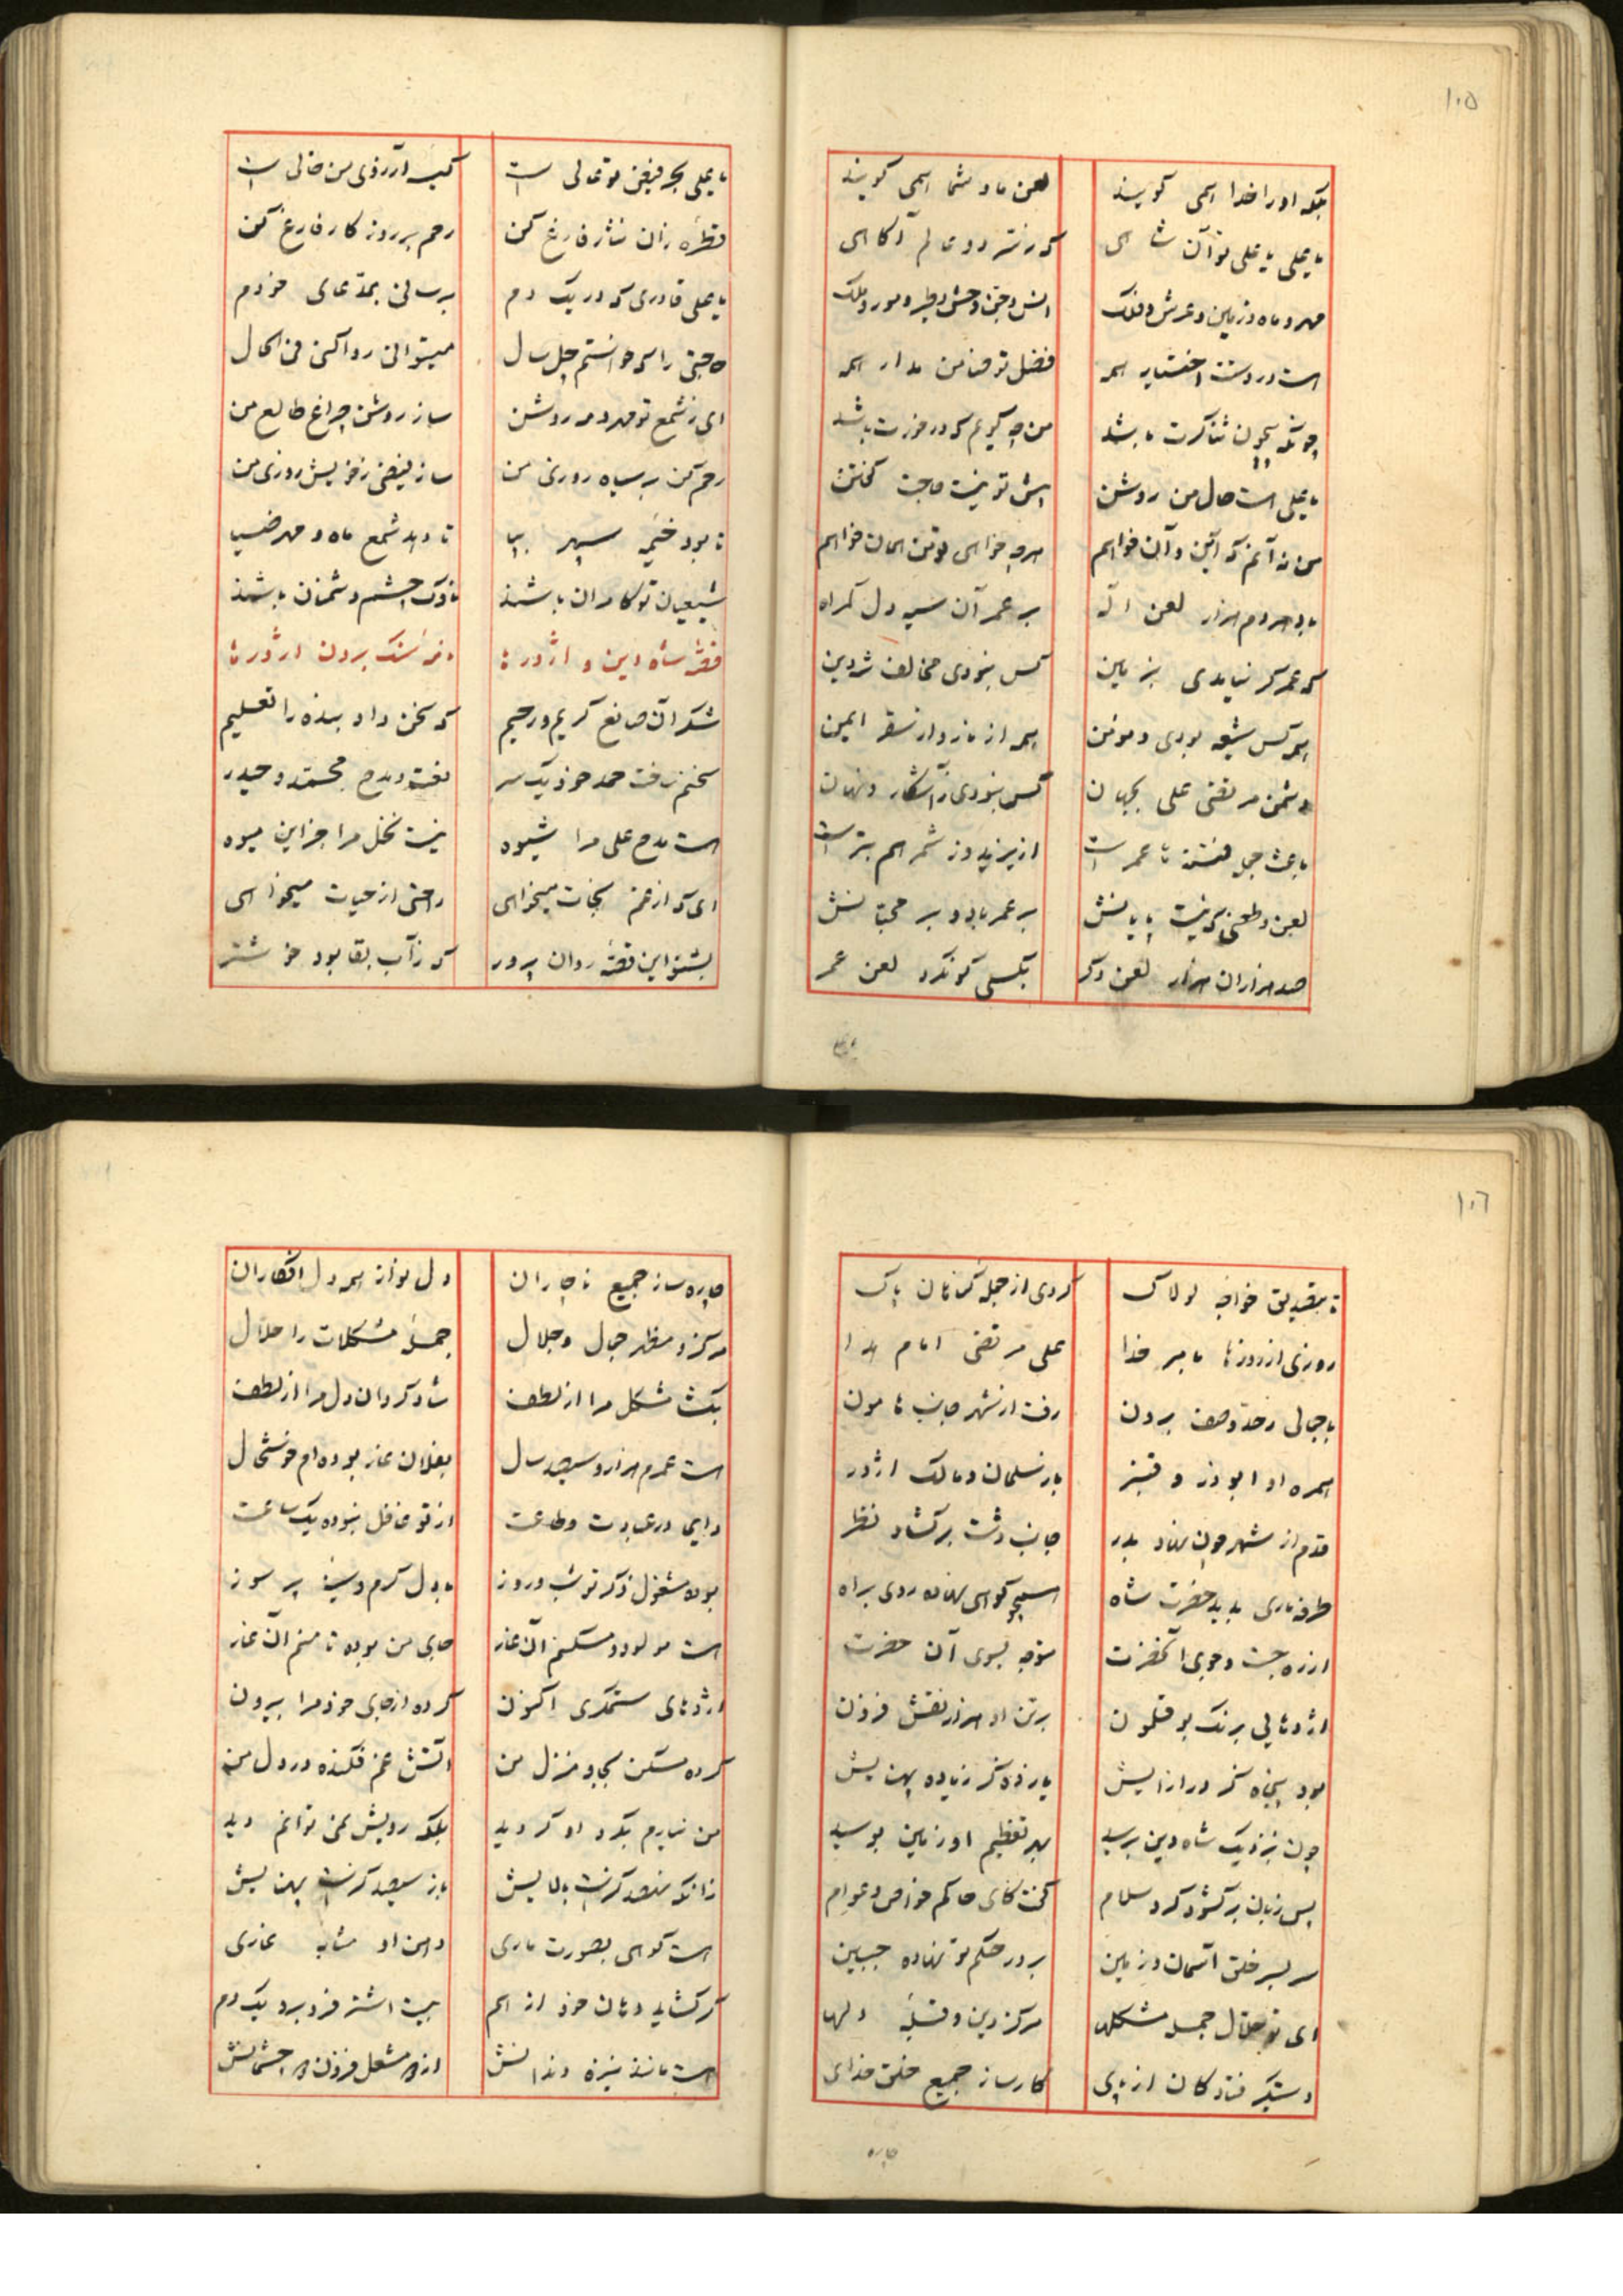 ۱۰۵
بلکه او را خدا همی گویند لعن ما و شما همی گویند
یا علی یا علی تو آن شاهی که ز سر دو عالم آکاهی
مهر و ماه و زمین و عرش و فلک انس و جن و وحش و طیر و مور و ملک
است در دستت اختیار همه فضل تو ضامن مدار همه
چونکه بیچون ثناکرت باشد من چه گویم که در خورت باشد
یا علی است حال من روشن پیش تو نیست حاجت گفتن
من نه آنم که این و آن خواهم هرچه خواهی تو من همان خواهم
باد هر دم هزار لعن اله بر عمر آن سیه دل گمراه
که عمر گر نیامدی بزمین کس نبودی مخالف ره دین
همه کس شیعه بودی و مومن همه از نار و از سقر ایمن
دشمن مرتضی علی بجهان کس نبودی ز آشکار و نهان
باعث جمله فتنه ها عمر است از یزید و ز شمر هم بتر است
لعن و طعنی که نیست پایانش بر عمر باد و بر محبانش
صد هزاران هزار لعن دگر بکسی کو نکرد لعن عمر
یا علی بحر فیض تو عالی است کیسه آرزوی من خالی است
قطره زان نثار فارغ کن رحم بر روز کار فارغ کن
یا علی قادری که در یک دم برسانی بمدعای خودم
حاجتی را که خواستم چل سال میتوانی روا کنی فی الحال
ای ز شمع تو مهر و مه روشن ساز روشن چراغ طالع من
رحم کن بر سیاه روزی من ساز فیضی ز خویش روزی من
تا بود خیمه سپهر بپا تا دهد شمع ماه و مهر ضیا
شیعیان تو کامران باشند ناوک چشم دشمنان باشند
قصه شاه دین و اژدرها
شکر آن صانع کریم و رحیم که سخن داد بنده را تعلیم
سخنم رفت حمد خود یک سر نعت و مدح محمد و حیدر
است مدح علی مرا شیوه نیست نخل مرا جز این میوه
ای که از غم نجات میخواهی راحتی از حیات میخواهی
بشنو این قصه روان پرور که ز آب بقا بود خوشتر
۱۰۶
تا بتصدیق خواجه لولاک کردی از جمله گناهان پاک
روزی از روزها بامر خدا علی مرتضی امام هدا
با جمالی ز حد وصف برون رفت از شهر جانب هامون
همره او ابوذر و قنبر باز سلمان و مالک اژدر
قدم از شهر چون نهاد بدر جانب دشت بر کشاد نظر
طرفه ماری بدید حضرت شاه همچو کوهی نهاده روی براه
از ره جست و جوی آنحضرت متوجه بسوی آن حضرت
اژدهایی برنک بوقلمون بر تن او هزار نقش فزون
بود پنجاه گز درازایش یازده گز زیاده پهنایش
چون بنزدیک شاه دین برسید بهر تعظیم او زمین بوسید
پس زبان بر کشود کرد سلام گفت کای حاکم خواص و عوام
سر بسر خلق آسمان و زمین بر در حکم تو نهاده جبین
ای تو حلال جمله مشکلها مرکز دین و قبله دلها
دستگیر فتادکان از پای کارساز جمیع خلق خدای
چاره
چاره ساز جمیع ناچاران دل نواز همه دل افکاران
مرکز و مظهر جمال و جلال جمله مشکلات را حلال
بکشا مشکل مرا از لطف شاد کردان دل مرا از لطف
است عمرم هزار و سیصد سال بفلان غار بوده ام خوشحال
دایم در عبادت و طاعت از تو غافل نبوده یک ساعت
بوده مشغول ذکر تو شب و روز با دل گرم و سینه پر سوز
است مولود و مسکنم آن غار جای من بوده تا منم آن غار
اژدهای ستمکری اکنون کرده از جای خود مرا بیرون
کرده مسکن بجا و منزل من آتش غم فکنده در دل من
من نیارم بگرد او گردید بلکه رویش نمی توانم دید
زانکه پانصد گز است بالایش باز سیصد گز است پهنایش
است کوهی بصورت ماری دهن او مشابه غاری
گر کشاید دهان خود از هم بیست اشتر فرو برد یک دم
است مانند نیزه دندانش از دو مشعل فزون دو چشمانش